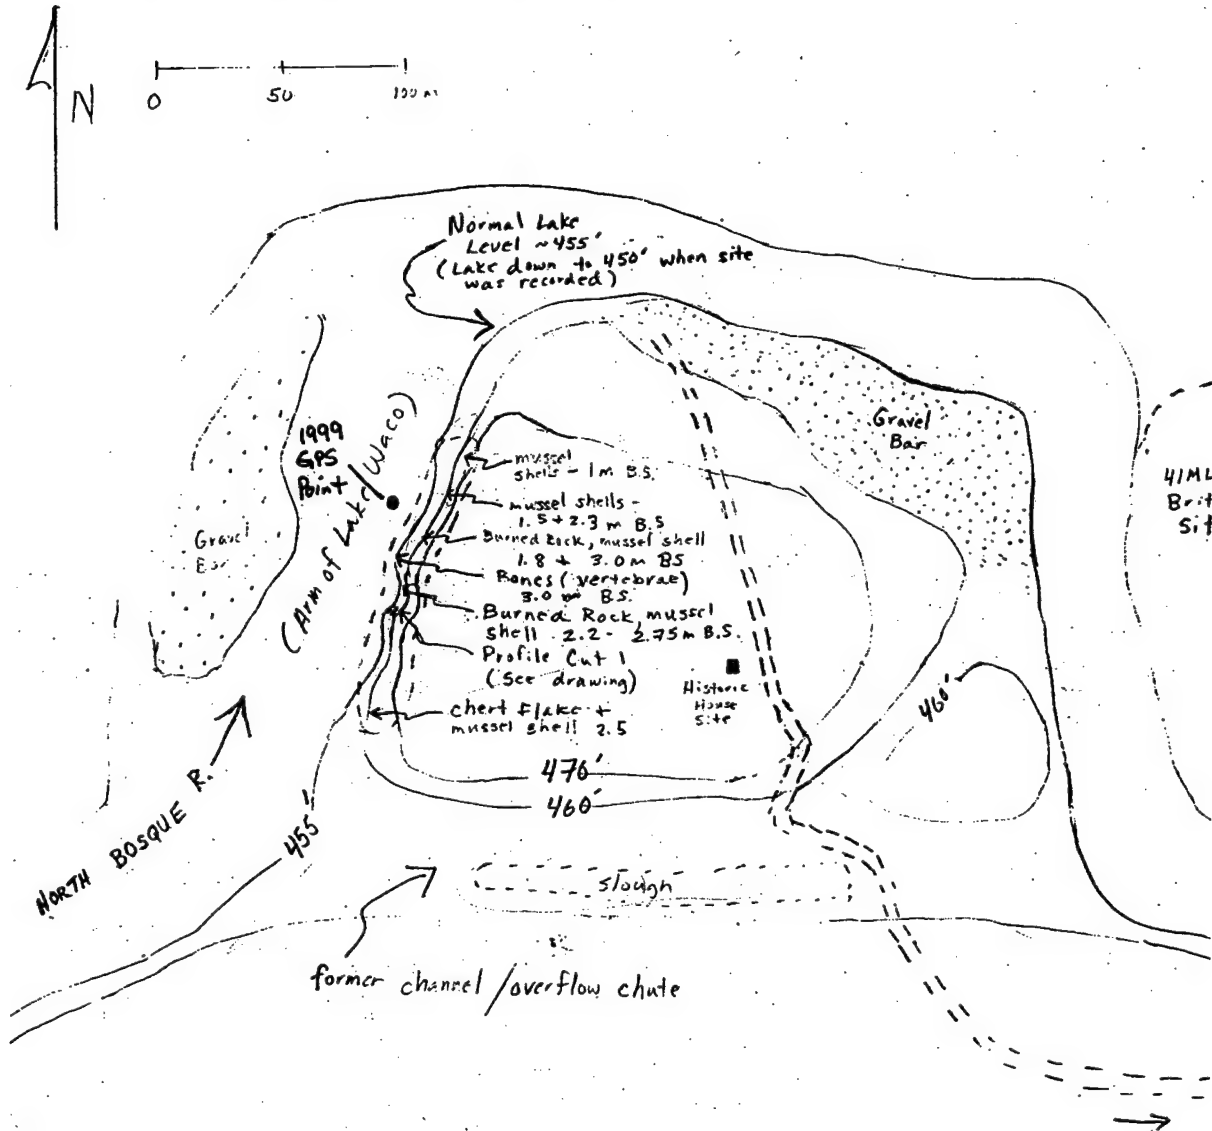 N
0 50 100 m
Normal Lake
Level ~455'
(Lake down to 450' when site
was recorded)
Gravel
Bar
1999
GPS
Point
(Arm of Lake Waco)
mussel
shells - 1m B.S.
mussel shells -
1.5 + 2.3 m B.S
Burned Rock, mussel shell
1.8 + 3.0m BS
Bones (vertebrae)
3.0 m B.S.
Burned Rock, mussel
shell 2.2 - 2.75m B.S.
Profile Cut 1
(See drawing)
chert flake +
mussel shell 2.5
Historic
House
Site
41ML
Brit
Sit
Gravel
Bar
460'
470'
460'
455'
NORTH BOSQUE R.
slough
former channel/overflow chute